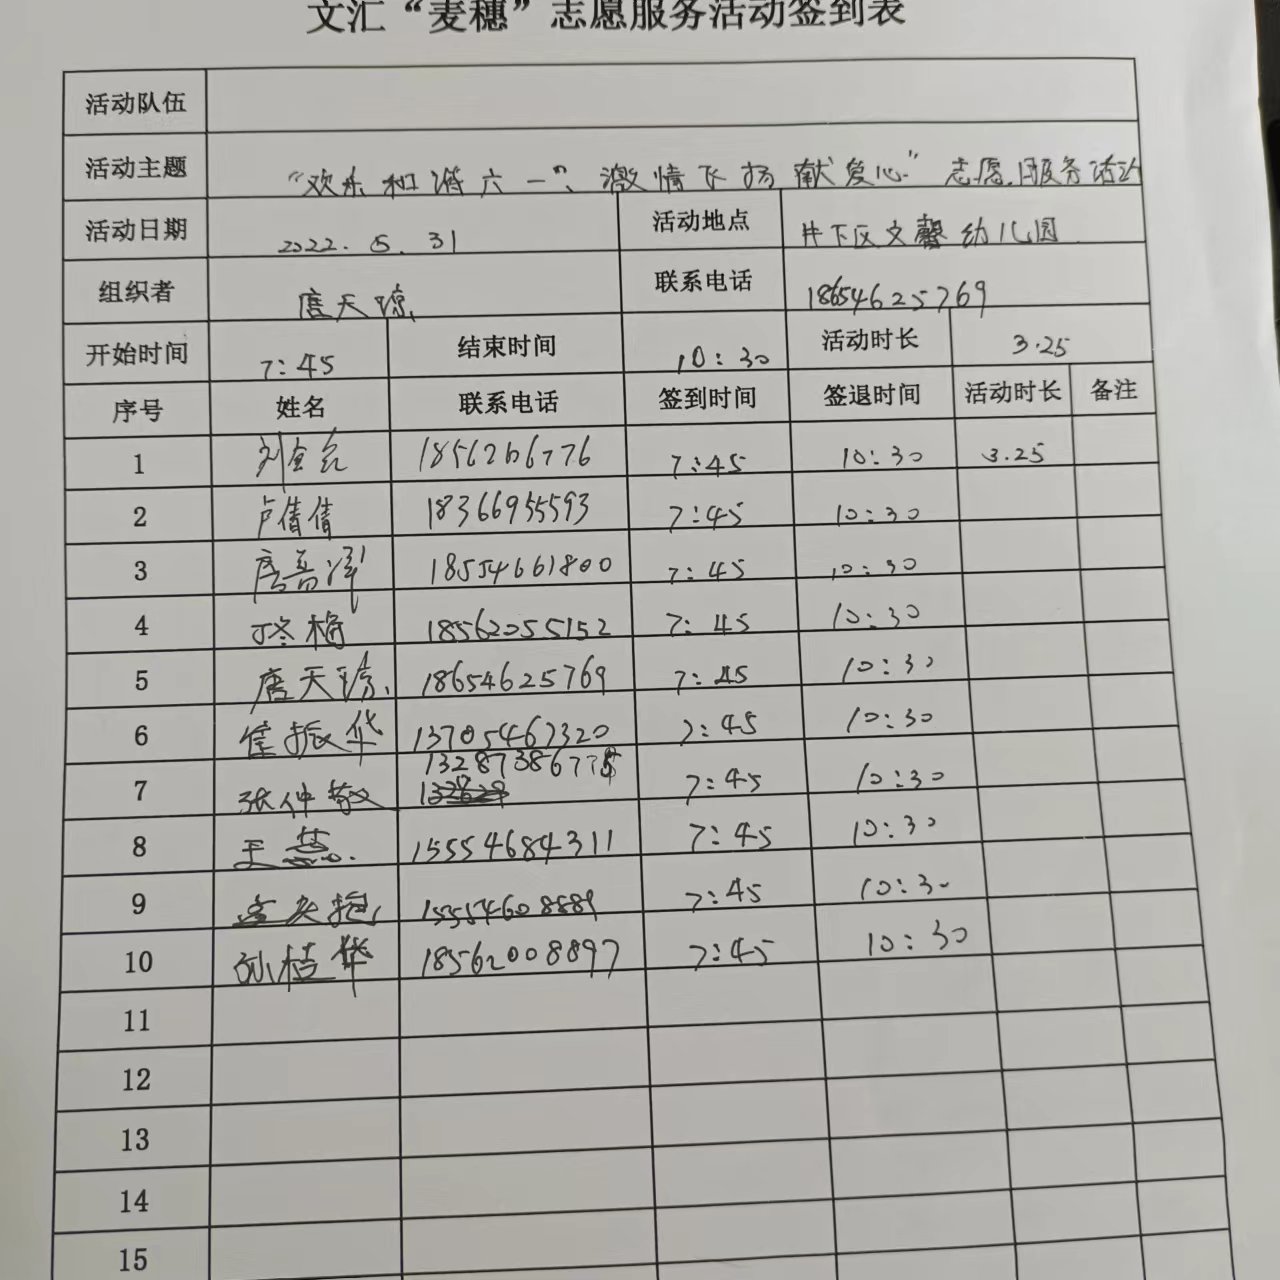 文汇“麦穗”志愿服务活动签到表
活动队伍
活动主题 “欢乐和谐六一”、激情飞扬献爱心”志愿服务活动
活动日期 2022.5.31 活动地点 井下区文馨幼儿园
组织者 唐天琼 联系电话 18654625769
开始时间 7:45 结束时间 10:30 活动时长 3.25
序号 姓名 联系电话 签到时间 签退时间 活动时长 备注
1 7:45 10:30 3.25
2 卢倩倩 18366955593 7:45 10:30
3 18554661800 7:45 10:30
4 18562055152 7:45 10:30
5 唐天琼 18654625769 7:45 10:30
6 振华 13705467320 7:45 10:30
7 张仲敬 7:45 10:30
8 王慧 15554684311 7:45 10:30
9 7:45 10:30
10 孙桂华 18562008897 7:45 10:30
11
12
13
14
15